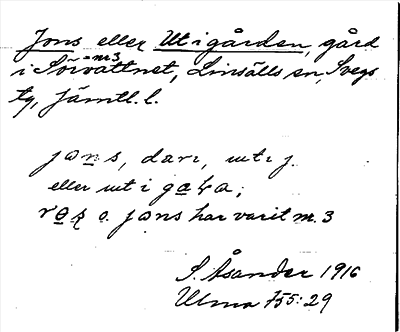 Jons eller Ut i gården, gård
= nr 3
i Sörvattnet, Linsälls sn, Svegs
tg, Jämtl. l.
jons, darı, ut ı j
eller ut i gaɫa;
o. jons har varit nr. 3
S. Åsander 1916
Ulma 755:29